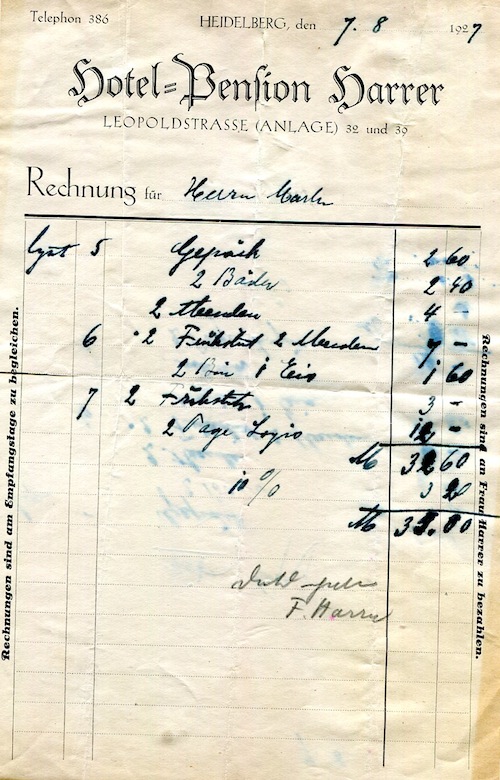 Telephon 386
HEIDELBERG, den 7. 8 1927
Hotel=Pension Harrer
LEOPOLDSTRASSE (ANLAGE) 32 und 39
Rechnung für Herrn
5 Gepäck 2 60
2 Bäder 2 40
2 4 -
6 2 Frühstück 2 7 -
2 1 Eis 1 60
7 2 Frühstück 3 -
2 Tage Logis 12 -
M 32 60
10 % 3 20
M
F. Harrer
Rechnungen sind am Empfangstage zu begleichen.
Rechnungen sind an Frau Harrer zu bezahlen.